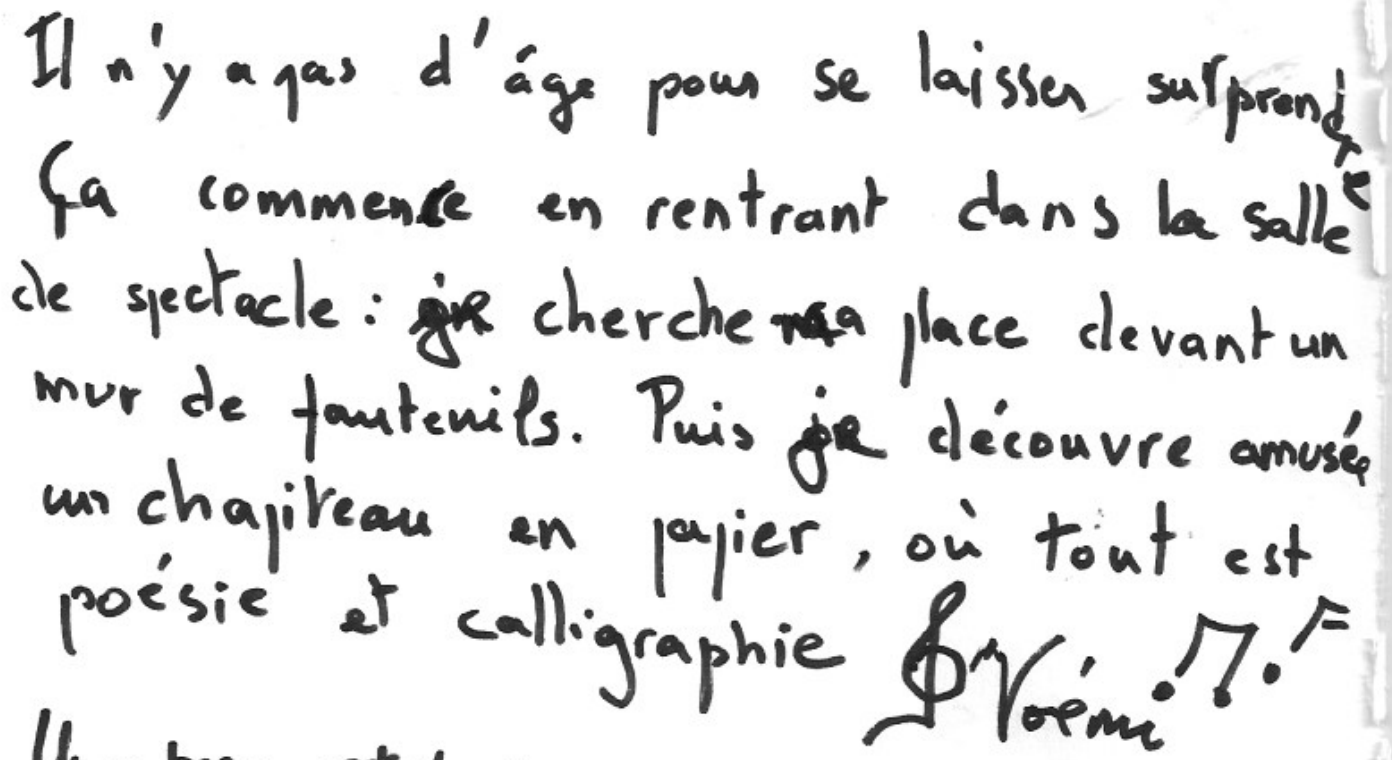 Il n'y a pas d'âge pour se laisser surprendre
Ça commence en rentrant dans la salle
de spectacle : je cherche ma place devant un
mur de fauteuils. Puis je découvre amusée
un chapiteau en papier, où tout est
poésie et calligraphie
Noémi